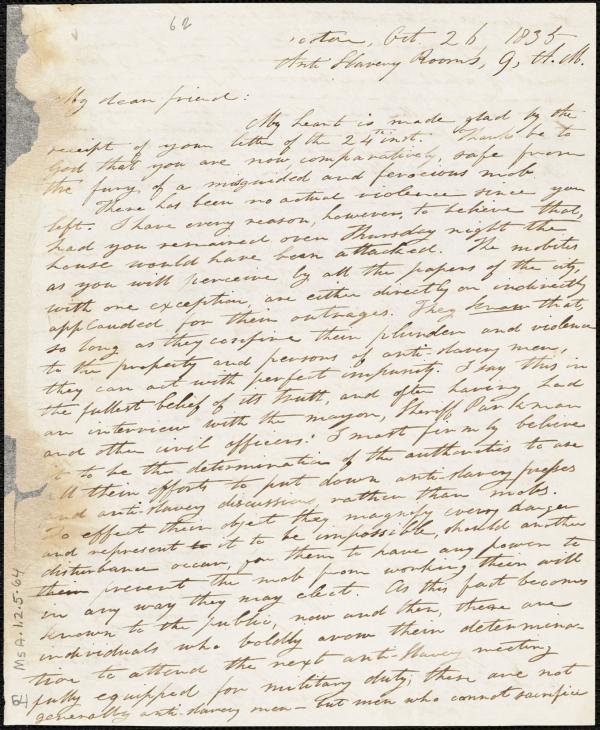 62
oston, Oct. 26 1835
Anti Slavery Rooms, 9, A.M.
My dear friend:
My heart is made glad by the
receipt of your letter of the 24th inst. Thanks be to
God that you are now comparatively, safe from
the fury of a misguided and ferocious mob.
There has been no actual violence since you
left. I have every reason, however, to believe that,
had you remained over Thursday night the
house would have been attacked. The mobites
as you will perceive by all the papers of the city,
with one exception, are either directly or indirectly
applauded for their outrages. They know that,
so long as they confine their plunder and violence
to the property and persons of anti-slavery men,
they can act with perfect impunity. I say this in
the fullest belief of its truth, and after having had
an interview with the mayor, Sheriff Parkman
and other civil officers. I most firmly believe
it to be the determination of the authorities to use
all their efforts to put down anti slavery presses
and anti slavery discussions rather than mobs.
To effect their object they magnify every danger
and represent to it to be impossible, should another
disturbance occur, for them to have any power to
them prevent the mob from working their will
in any way they may elect. As this fact becomes
known to the public, now and then, there are
individuals who boldly avow their determina-
tion to attend the next anti-slavery meeting
fully equipped for military duty; these are not
generally anti-slavery men - but men who cannot sacrifice
Ms A.1.2.5.64